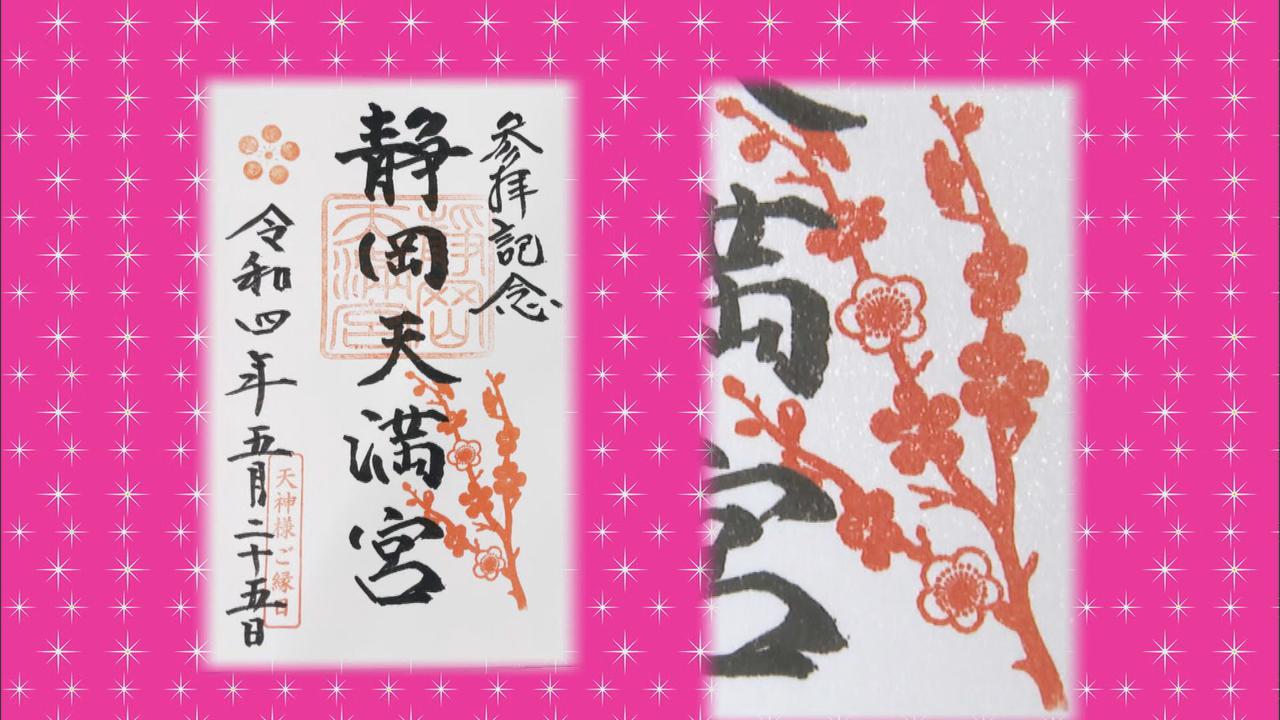 参拝記念
静岡天満宮
静岡天満宮
令和四年五月二十五日
天神様ご縁日
満宮